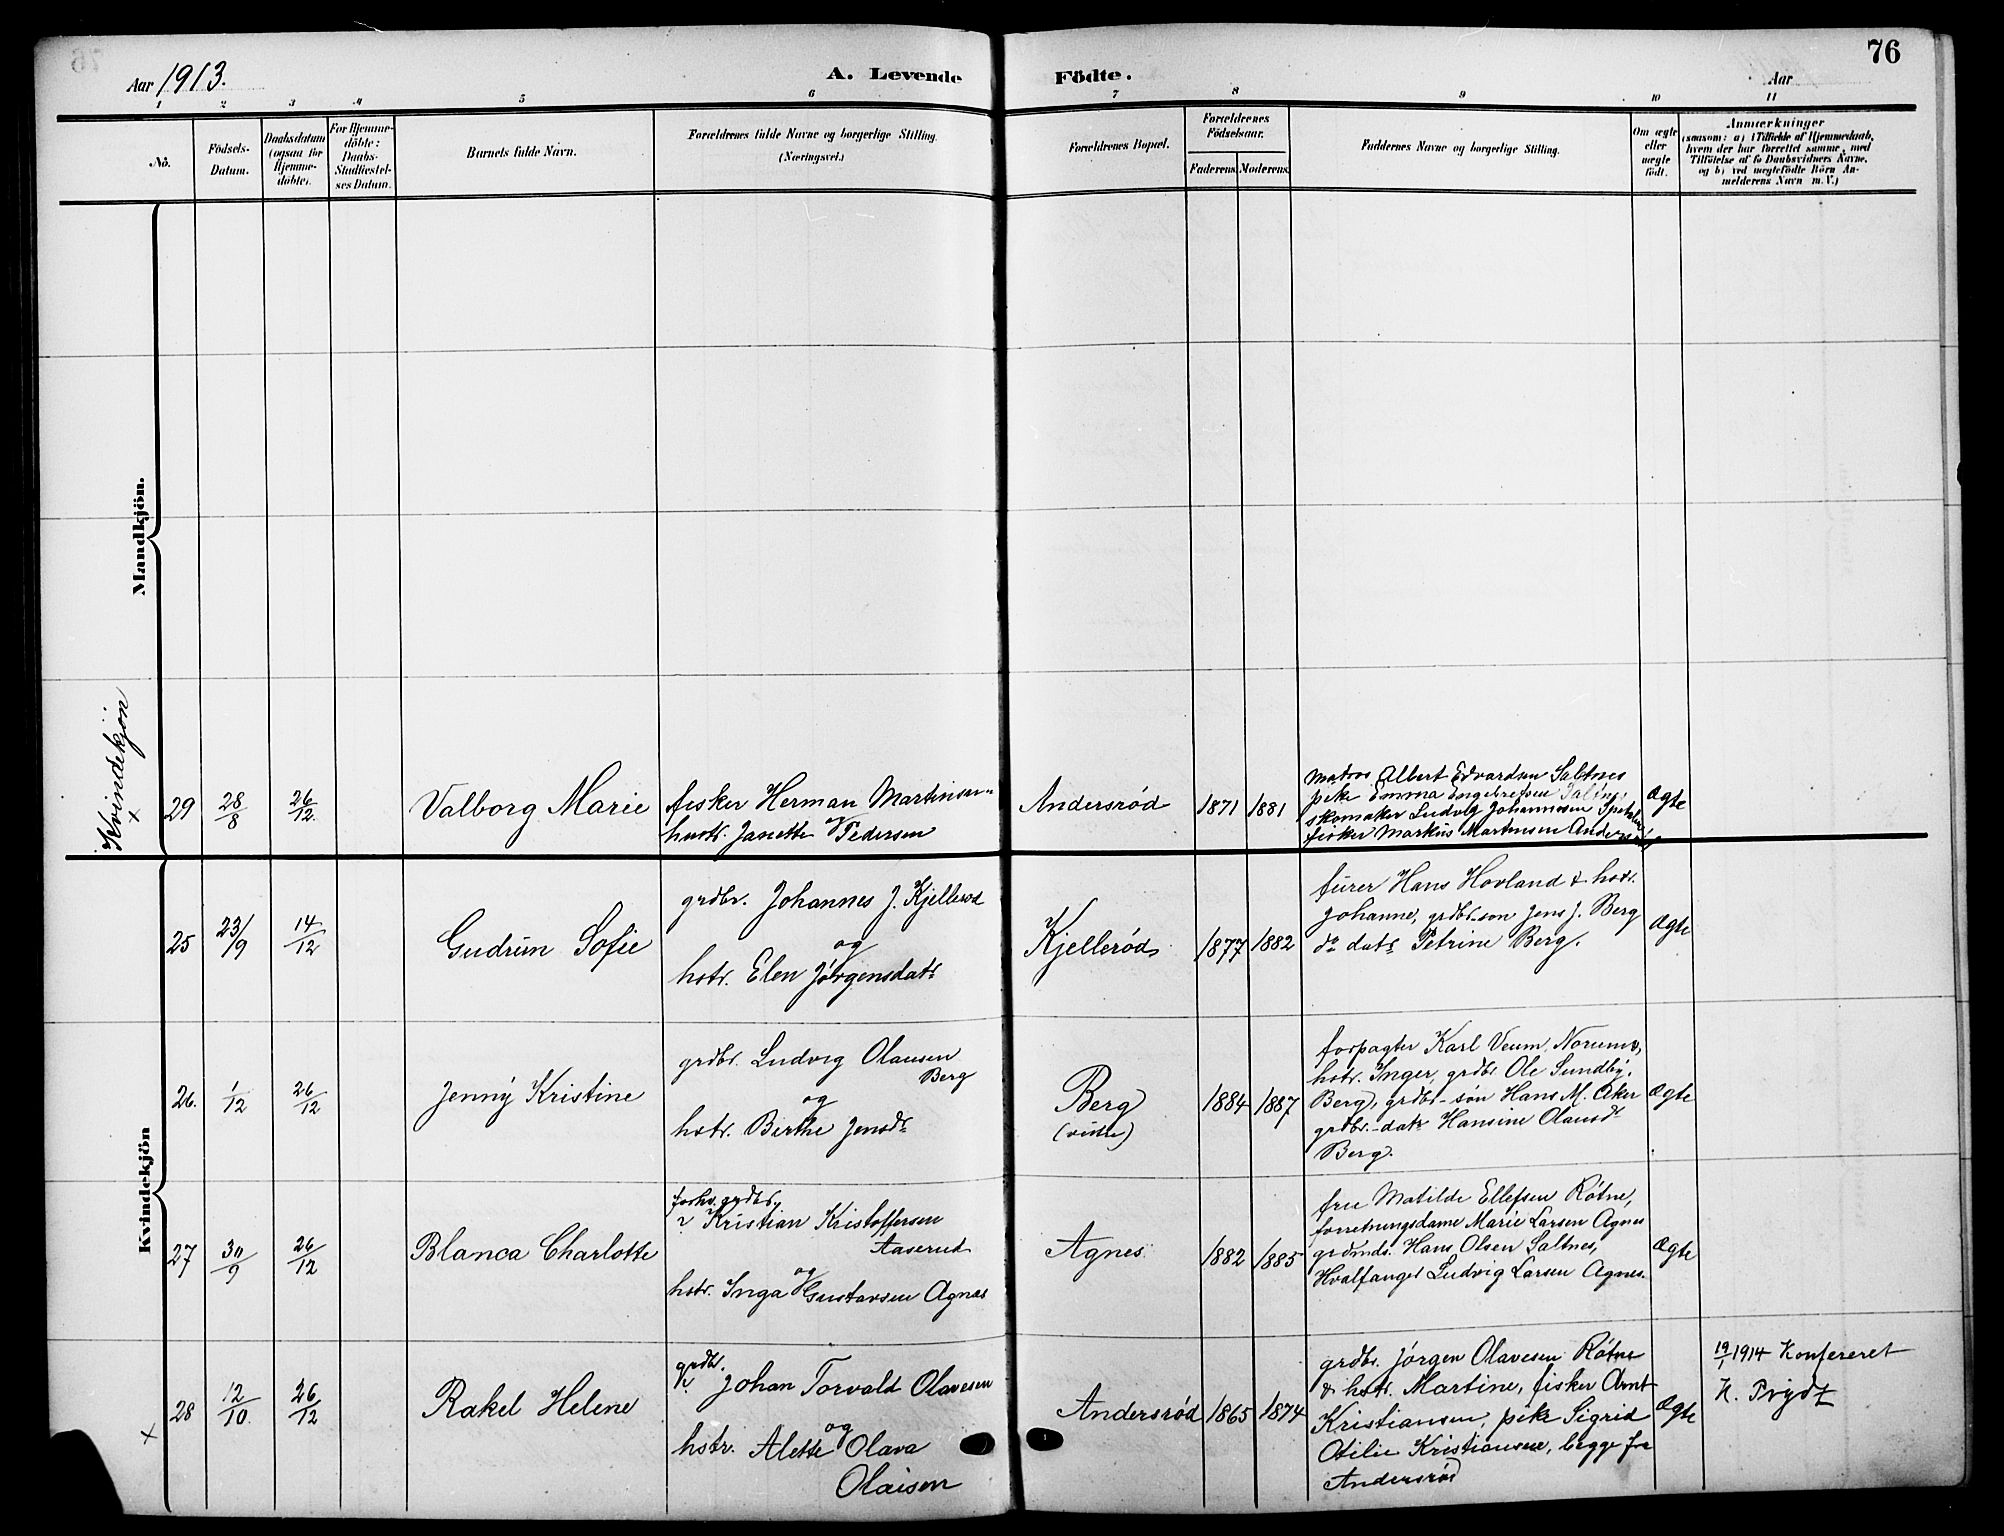 76
Aar 1913.
A. Levende Födte.
Aar
1 2 3 4 5 6 7 8 9 10 11
No.
Födsels-
Datum.
Daabsdatum
(ogsaa for
Hjemme-
döbte).
For Hjemme-
döbte:
Daabs-
Stadfæstel-
ses Datum.
Barnets fulde Navn.
Forældrenes fulde Navne og borgerlige Stilling.
(Næringsvei.)
Forældrenes Bopæl.
Forældrenes
Födselsaar.
Faderens. Moderens.
Faddernes Navne og borgerlige Stilling.
Om ægte
eller
uægte
födt.
Anmærkninger
(saasom: a) i Tilfælde af Hjemmedaab,
hvem der har forrettet samme, med
Tilföielse af to Daabsvidners Navne,
og b) ved uægtefödte Börn An-
melderens Navn m. V.)
Mandkjön.
Kvindekjön
×
29
28/8
26/12
Valborg Marie
fisker Herman Martinsen
hustr. Janette Pedersen
Andersrød
1871
1881
matros Albert Edvardsen Saltnes
pike Emma Engebretsen
skomaker Ludvig Johannesen
fisker Markus Martinsen Andersrød
Ægte
Kvindekjön
25
23/9
14/12
Gudrun Sofie
grdbr. Johannes J. Kjellerød
og
hstr. Elen Jörgensdatr
Kjellerød
1877
1882
furer Hans Hovland & hstr.
Johanne, grdbr-søn Jens J. Berg
do datr Petrine Berg.
Ægte
26.
1/12
26/12
Jenny Kristine
grdbr. Ludvig Olausen
Berg
og
hstr. Berthe Jensdr
Berg
1884
1887
forpagter Karl Veum,
hstr. Inger, grdbr Ole Sundby,
Berg, grdbr-søn Hans M. Aker
grdbr.-datr Hansine Olausdr
Berg.
Ægte
27
30/9
26/12
Blanca Charlotte
forhv. grdbr,
Kristian Kristoffersen
Aaserud
og
hstr. Inga Gustavsen Agnes
Agnes
1882
1885
fru Matilde Ellefsen Røtne,
forretningsdame Marie Larsen Agnes
grdmds. Hans Olsen Saltnes,
Hvalfanger Ludvig Larsen Agnes.
Ægte
×
28
12/10.
26/12
Rakel Helene
grdbr.
Johan Torvald Olavesen
og
hstr. Alette Olava
Olaisen
Andersrød
1865
1874
grdbr. Jörgen Olavesen Røtne
& hstr. Martine, fisker Arnt
Kristiansen, pike Sigrid
Otilie Kristiansen, begge fra
Andersrød
Ægte
19/1 1914 Konfereret